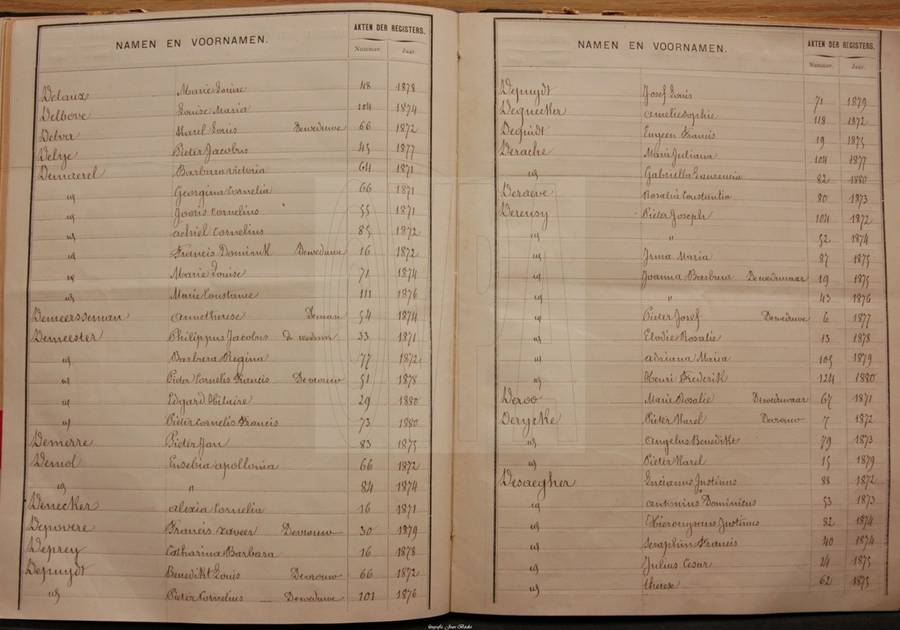 NAMEN EN VOORNAMEN. AKTEN DER REGISTERS.
Nummer. Jaar.
Delaux Marie Louise 48 1878
Delbove Louise Maria 104 1874
Delva Karel Louis Deweduwe 66 1872
Delye Pieter Jacobus 45 1877
Demaerel Barbara victoria 64 1871
id Georgina Cornelia 66 1871
id Jooris Cornelius 55 1871
id achiel Cornelius 85 1872
id Francis Dominik Deweduwe 16 1872
id Marie Louise 71 1874
id Marie Constance 111 1876
Demeersseman annetherese Deman 54 1874
Demeester Philippus Jacobus de weduwe 33 1871
id Barbara Regina 77 1872
id Pieter Cornelis Francis Devrouw 51 1878
id Edgard Hilaire 29 1880
id Pieter Cornelis Francis 73 1880
Demerre Pieter Jan 83 1875
Demol Eusebia apollonia 66 1872
id " 84 1874
Denecker alexia Cornelia 16 1871
Depovere Francis xaveer Devrouw 30 1879
Deprey Catharina Barbara 16 1878
Depuydt Benedikt Louis Devrouw 66 1872
id Pieter Cornelius Deweduwe 101 1876
NAMEN EN VOORNAMEN. AKTEN DER REGISTERS.
Nummer. Jaar.
Depuydt Josef Louis 71 1879
Dequecker ameliesophie 118 1872
Dequidt Eugeen Francis 19 1875
Derache Marie Juliana 104 1877
id Gabriella Laurencia 82 1880
Deraeve Rosalia Constantia 80 1873
Dereusy Pieter Joseph 104 1872
id " 52 1874
id Irma Maria 87 1875
id Joanna Barbara Deweduwaar 19 1875
id " 43 1876
id Pieter Josef Deweduwe 6 1877
id Elodie Rosalie 13 1878
id adriana Maria 105 1879
id Henri Frederik 124 1880
Deroo Marie Rosalie Deweduwaar 67 1871
Derycke Pieter Karel Devrouw 7 1872
id angelus Benedikt 79 1873
id Pieter Karel 15 1879
Desaegher Lucianus Justinus 88 1872
id antonius Dominicus 53 1873
id Hieronymus Justinus 82 1874
id Seraphin Francis 40 1874
id Julius Cesar 24 1875
id therese 62 1875